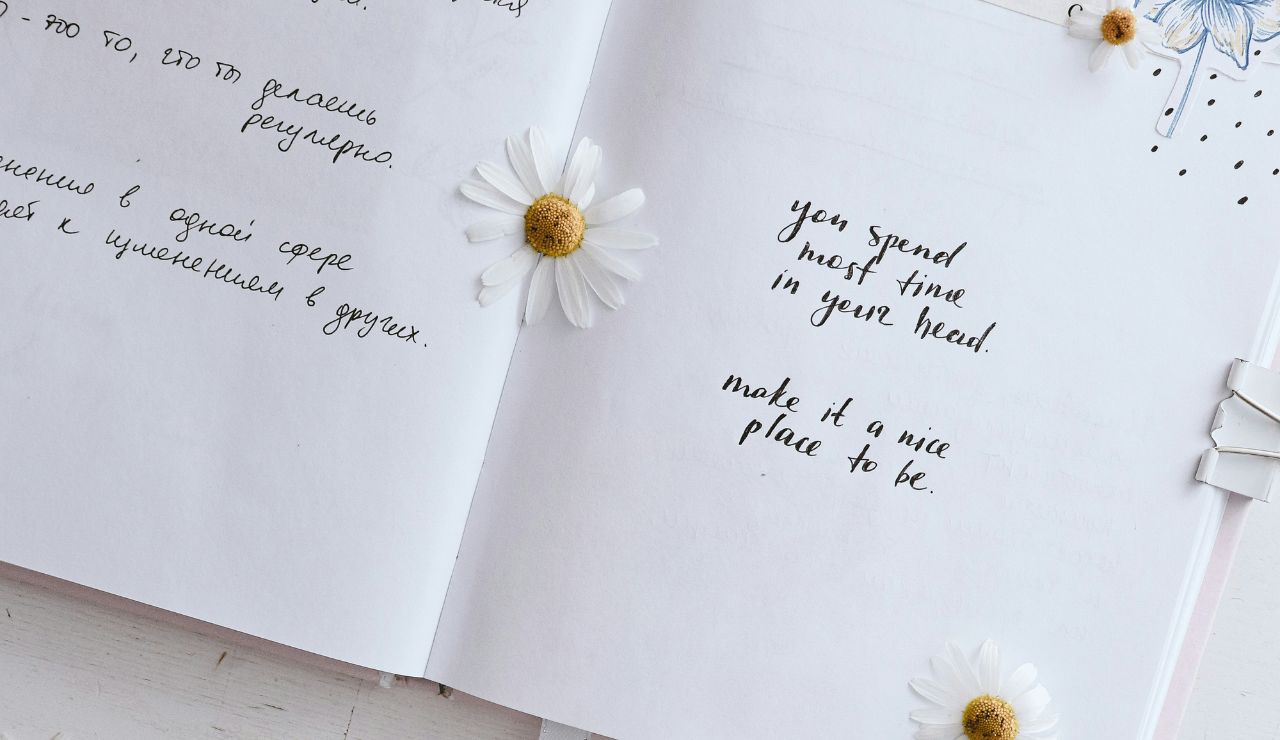 - это то, что ты
делаешь
регулярно.
в одной сфере
к изменениям в других.
you spend
most time
in your head.
make it a nice
place to be.